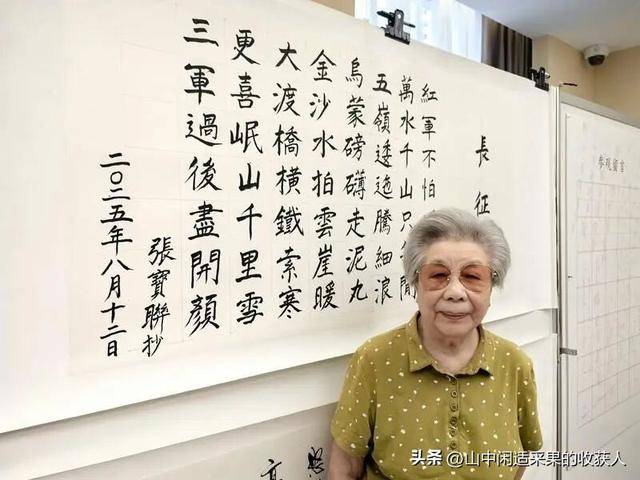 長征
紅軍不怕
萬水千山只等閒
五嶺逶迤騰細浪
烏蒙磅礴走泥丸
金沙水拍雲崖暖
大渡橋橫鐵索寒
更喜岷山千里雪
三軍過後盡開顏
張寶聯抄
二〇二五年八月十二日
参观留言
头条 @山中闲适采果的收获人